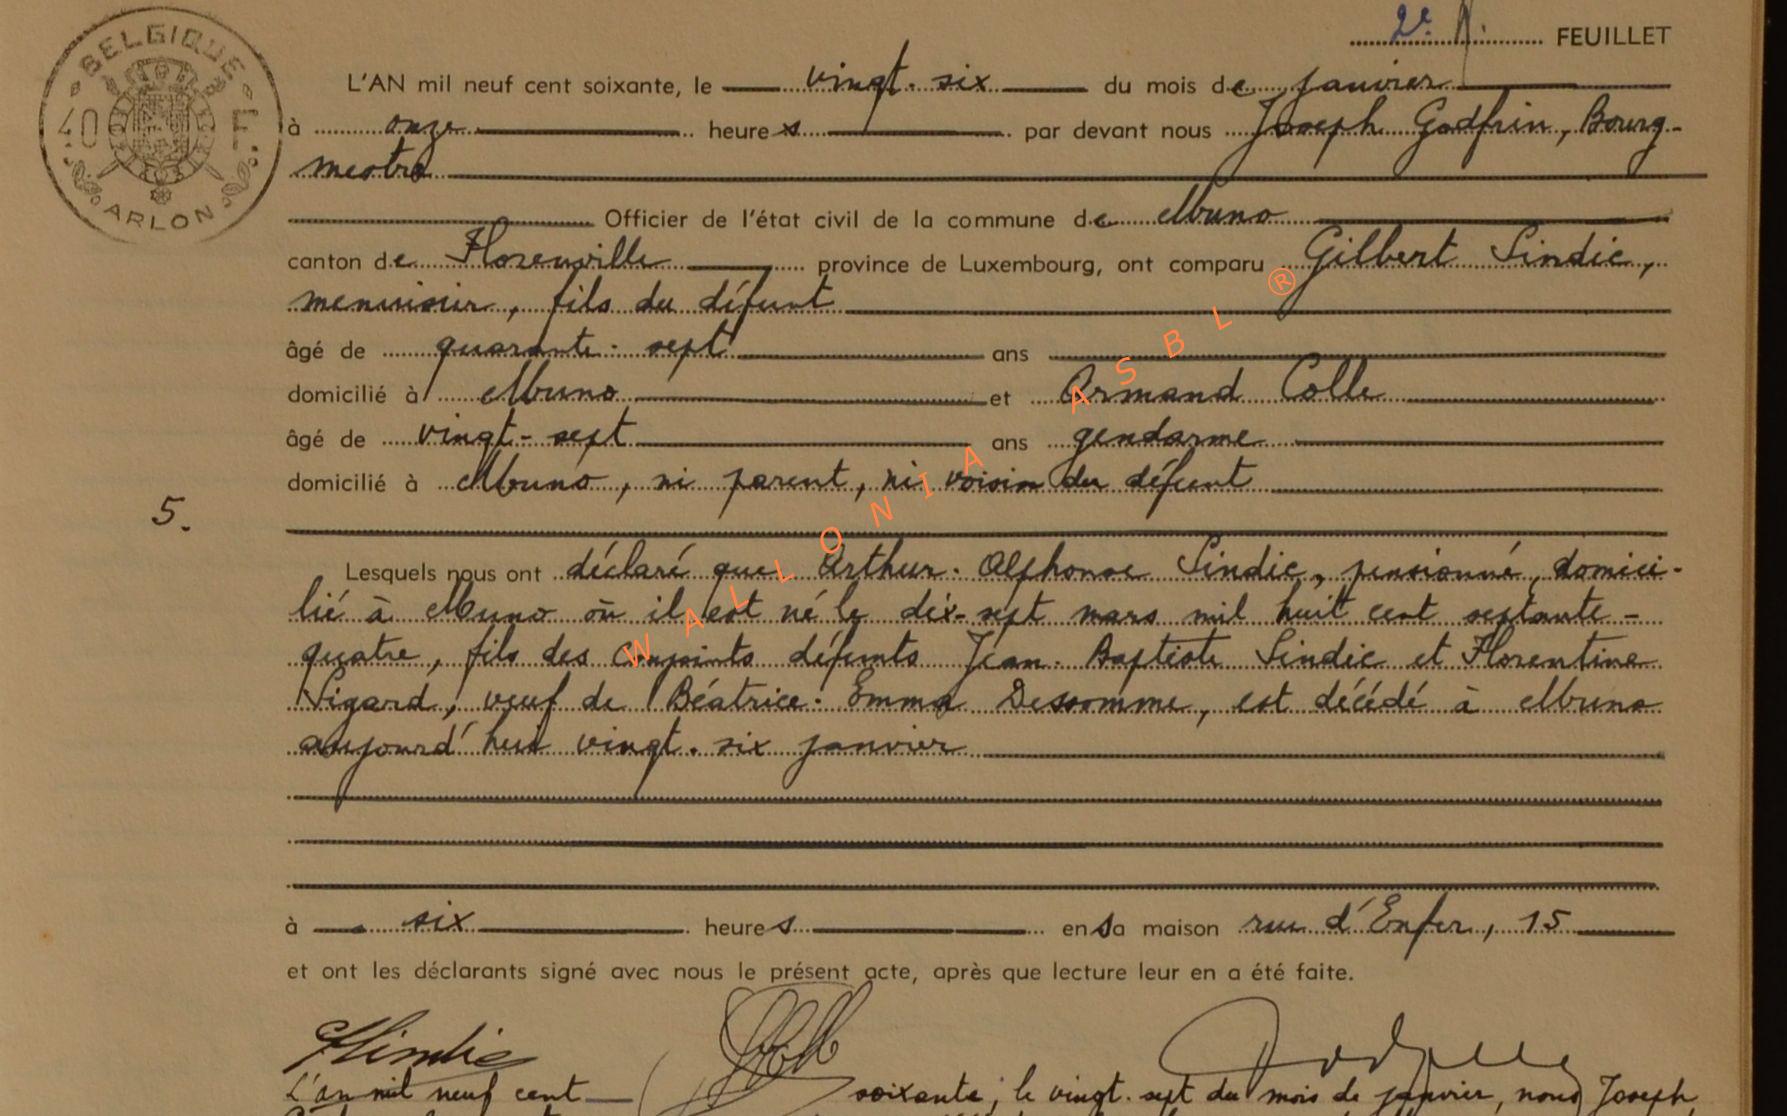 2e FEUILLET
BELGIQUE
40 F.
ARLON
L'AN mil neuf cent soixante, le vingt-six du mois de janvier
à onze heures par devant nous Joseph Godfrin, Bourg-
mestre
Officier de l'état civil de la commune de Muno
canton de Florenville province de Luxembourg, ont comparu Gilbert Sindic,
menuisier, fils du défunt
âgé de quarante-sept ans
domicilié à Muno et Armand Colle
âgé de vingt-sept ans gendarme
domicilié à Muno, ni parent, ni voisin du défunt
5.
Lesquels nous ont déclaré que Arthur-Alphonse Sindic, pensionné, domici-
lié à Muno où il est né le dix-sept mars mil huit cent septante-
quatre, fils des conjoints défunts Jean-Baptiste Sindic et Florentine
Sigard, veuf de Béatrice-Emma Dessomme, est décédé à Muno
aujourd'hui vingt-six janvier
à six heures en sa maison rue d'Enfer, 15
et ont les déclarants signé avec nous le présent acte, après que lecture leur en a été faite.
GSindic
L'an mil neuf cent soixante, le vingt-sept du mois de janvier, nous Joseph
WALLONIA ASBL ®